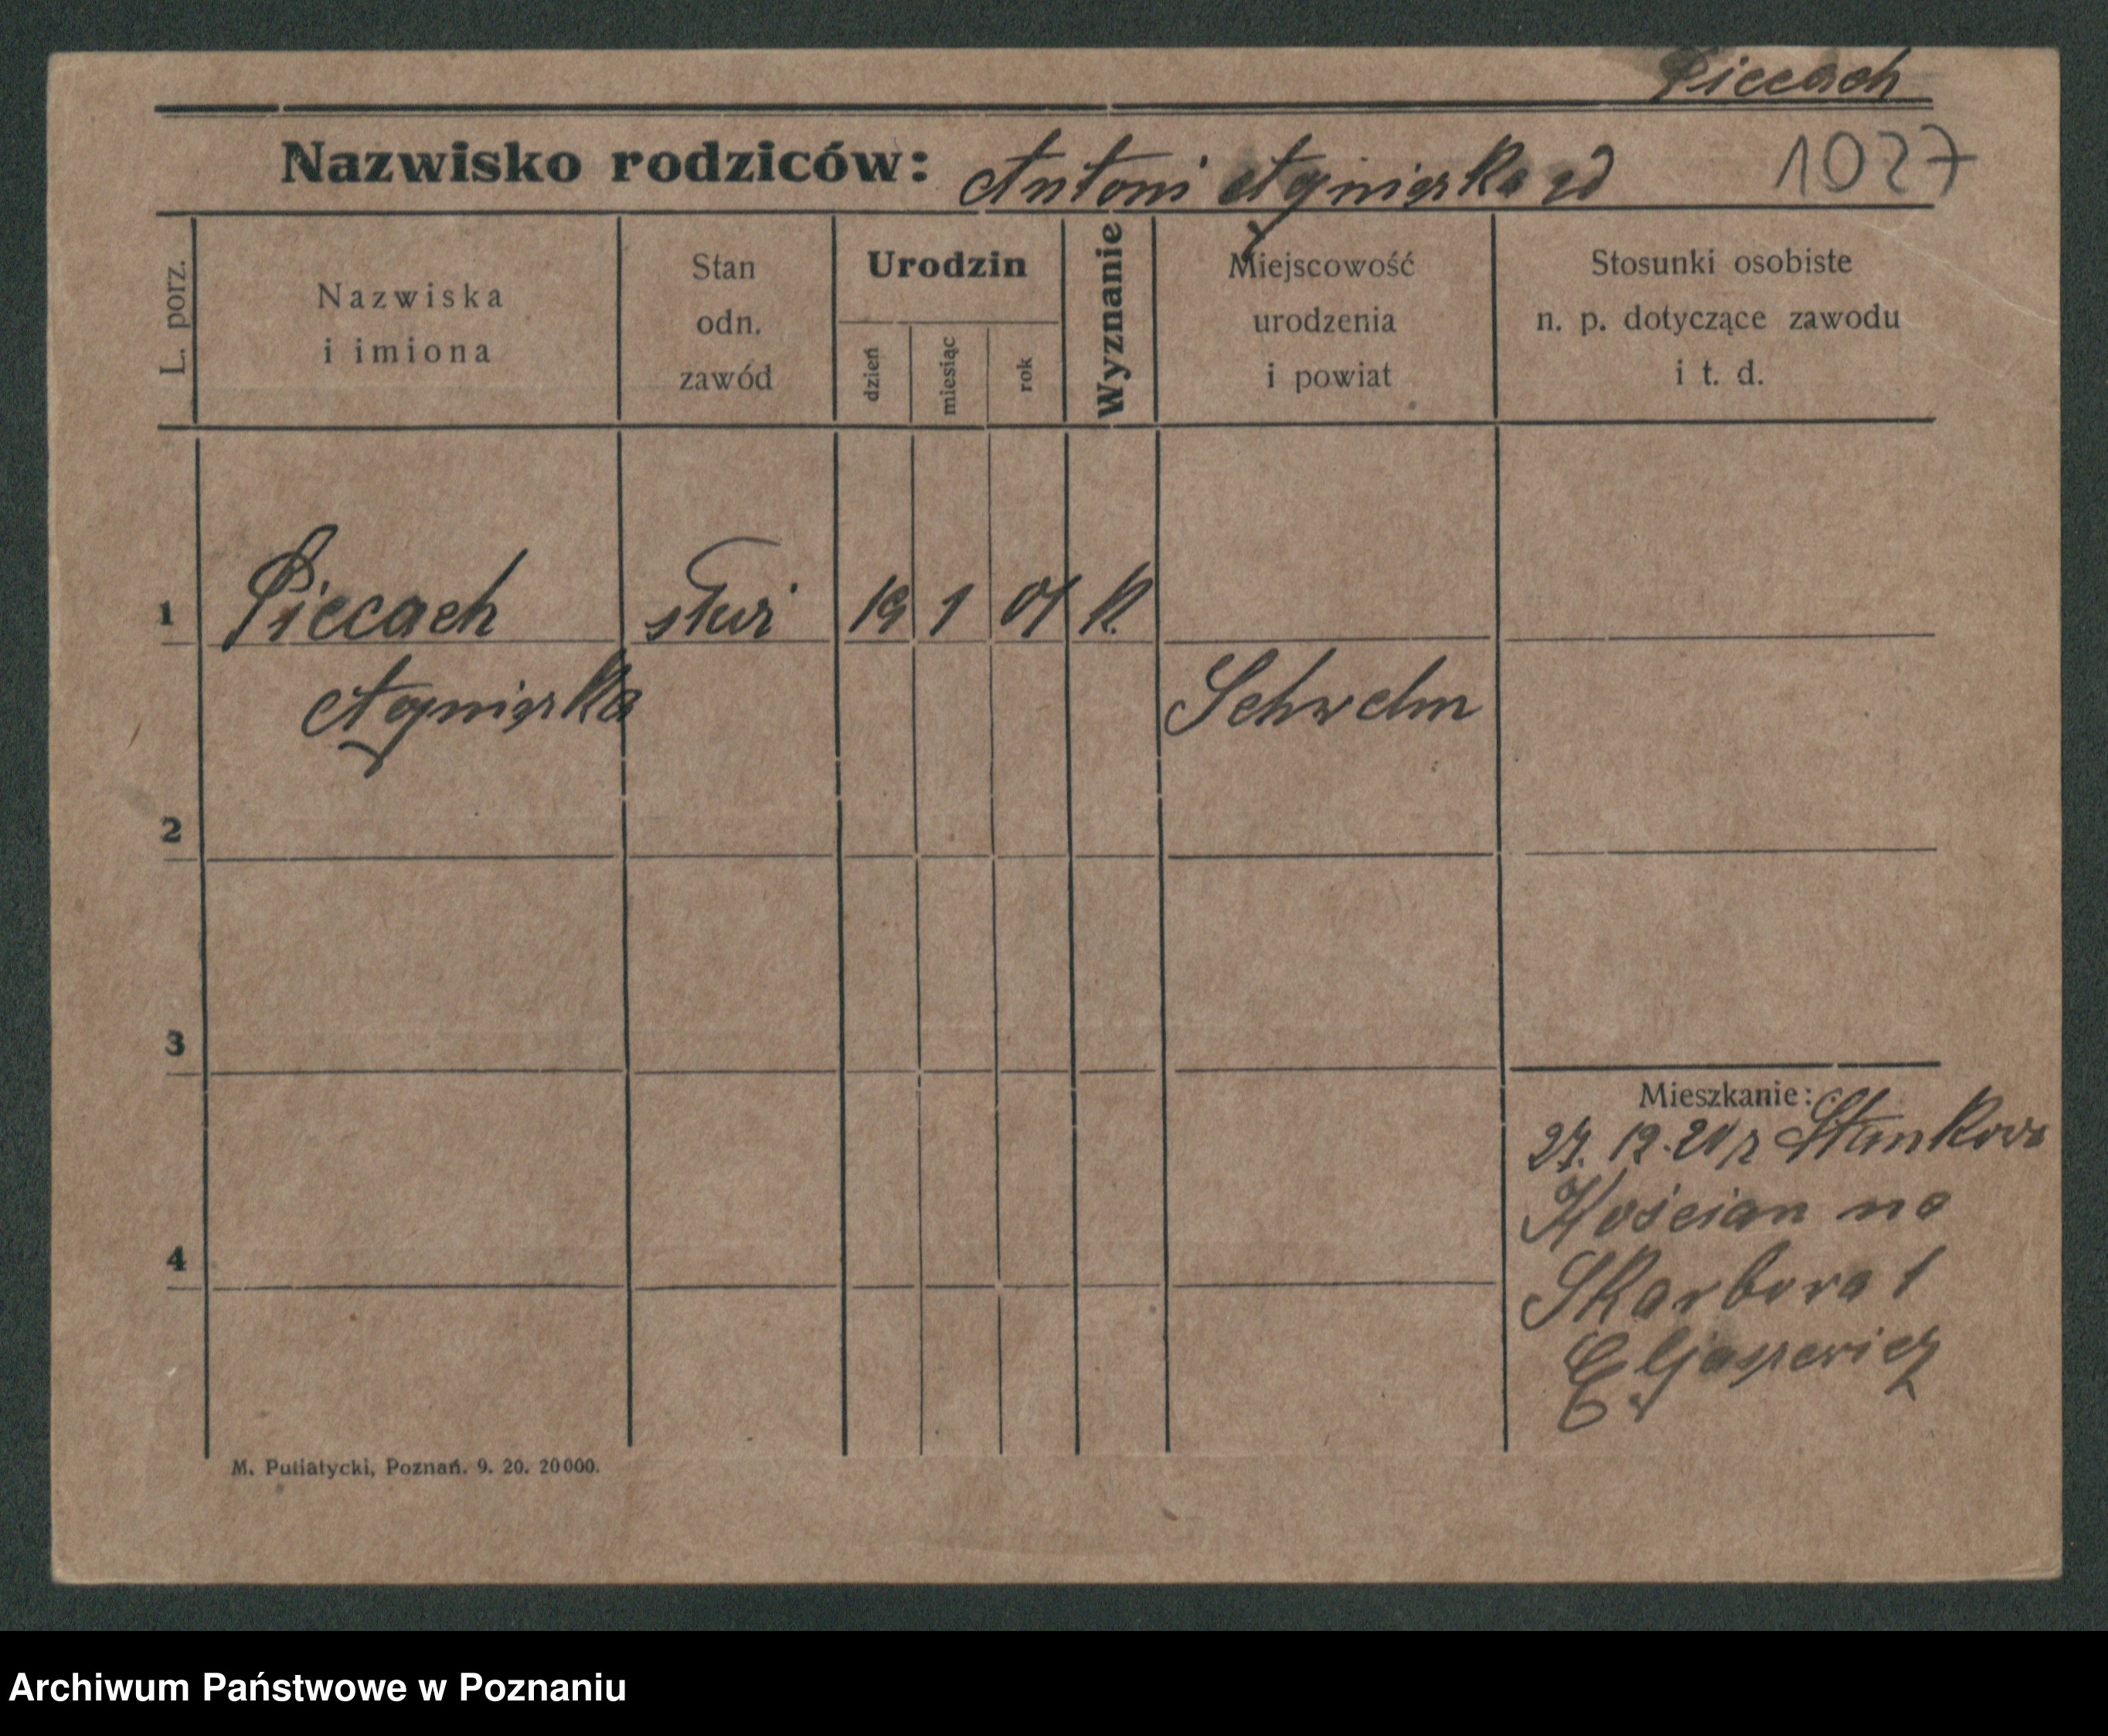 Piecach
Nazwisko rodziców: Antoni Agnieszka zd
1027
L. porz.
Nazwiska
i imiona
Stan
odn.
zawód
Urodzin
dzień
miesiąc
rok
Wyznanie
Miejscowość
urodzenia
i powiat
Stosunki osobiste
n. p. dotyczące zawodu
i t. d.
1 Piecach 19 1 01 K.
Agnieszka Schwelm
2
3
4
Mieszkanie:
12.20 r
Kościan na
Skarbowa 1
Eljaszewicz
M. Putiatycki, Poznań. 9. 20. 20000.
Archiwum Państwowe w Poznaniu